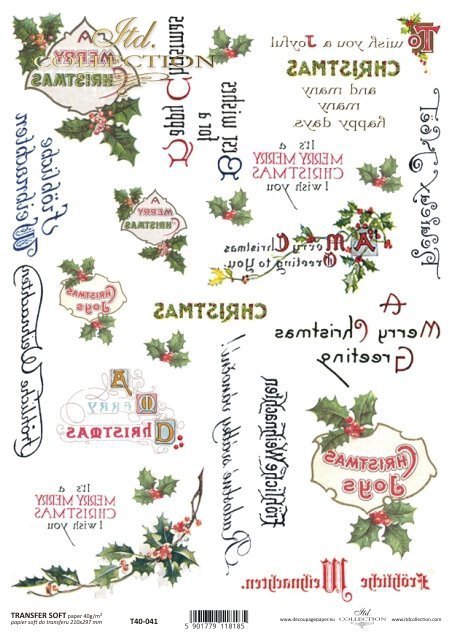 Itd.
COLLECTION
A
MERRY
CHRISTMAS
A Happy Christmas
for a
Best wishes
To wish you a Joyful
CHRISTMAS
and many
many
happy days
It's a
MERRY MERRY
CHRISTMAS
I wish you
Fröhliche
Weihnachten
A
MERRY
CHRISTMAS
A Merry Christmas
Greeting to You.
CHRISTMAS
Joys
CHRISTMAS
A
Merry Christmas
Greeting
Fröhliche Weihnachten
A
MERRY
CHRISTMAS
Radosnych
Fröhliche Weihnachten
CHRISTMAS
Joys
It's a
MERRY MERRY
CHRISTMAS
I wish you
Fröhliche Weihnachten.
TRANSFER SOFT paper 40g/m²
papier soft do transferu 210x297 mm
T40-041
5 901779 118185
www.decoupagepaper.eu
Itd.
COLLECTION
www.itdcollection.com